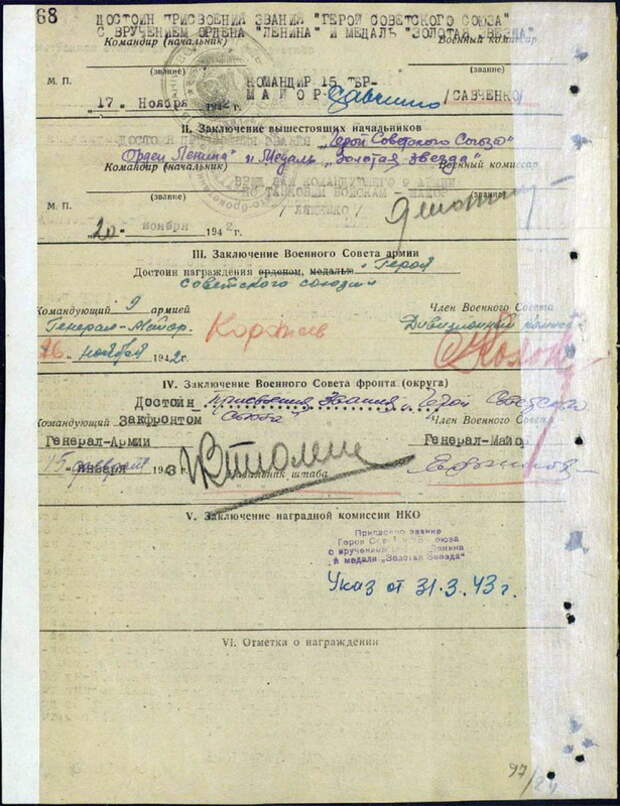 68
ДОСТОИН ПРИСВОЕНИЯ ЗВАНИЯ "ГЕРОЙ СОВЕТСКОГО СОЮЗА"
С ВРУЧЕНИЕМ ОРДЕНА "ЛЕНИНА" И МЕДАЛЬ "ЗОЛОТАЯ ЗВЕЗДА"
Командир (начальник) Военный комиссар
(звание) (звание)
М. П. КОМАНДИР 15 ТБР-
МАЙОР Савченко /САВЧЕНКО/
"17" Ноября 1942 г.
II. Заключение вышестоящих начальников
ДОСТОИН ПРИСВОЕНИЯ ЗВАНИЯ „Герой Советского Союза"
Орден Ленина" и Медаль „Золотая звезда"
Командир (начальник) Военный комиссар
(звание) (звание)
М. П.
"20" ноября 1942 г.
III. Заключение Военного Совета армии
Достоин награждения орденом, медалью „Герой
Советского союза"
Командующий 9 армией Член Военного Совета
Генерал-Майор Дивизионный
26 ноября 1942 г.
IV. Заключение Военного Совета фронта (округа)
Достоин присвоения звания „Герой Советского
Союза"
Командующий Закфронтом Член Военного Совета
Генерал-Армии Генерал-Майор
15 февраля 1943 Начальник штаба
V. Заключение наградной комиссии НКО
Присвоено звание
Героя Союза
с вручением Ленина
и медали „Золотая Звезда"
Указ от 31.3.43 г.
VI. Отметка о награждении
97/